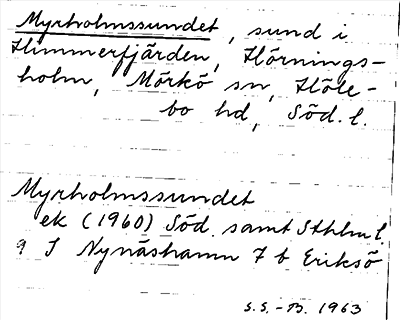 Myrholmssundet, sund i
Himmerfjärden, Hörnings-
holm, Mörkö sn, Höle-
bo hd, Söd. l.
Myrholmssundet
ek (1960) Söd. samt Sthlm l.
9 I Nynäshamn 7 b Eriksö
S.S.-B. 1963